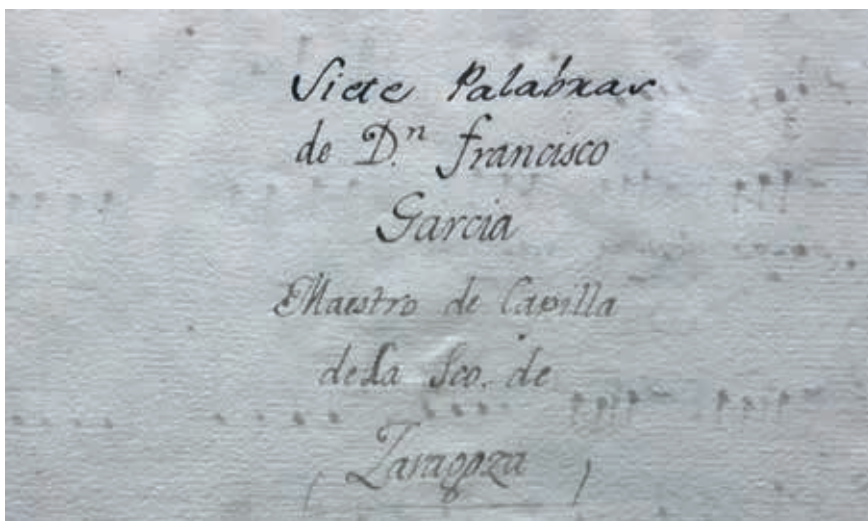 Siete Palabras
de D.ⁿ francisco
Garcia
Maestro de Capilla
de La Seo. de
Zaragoza